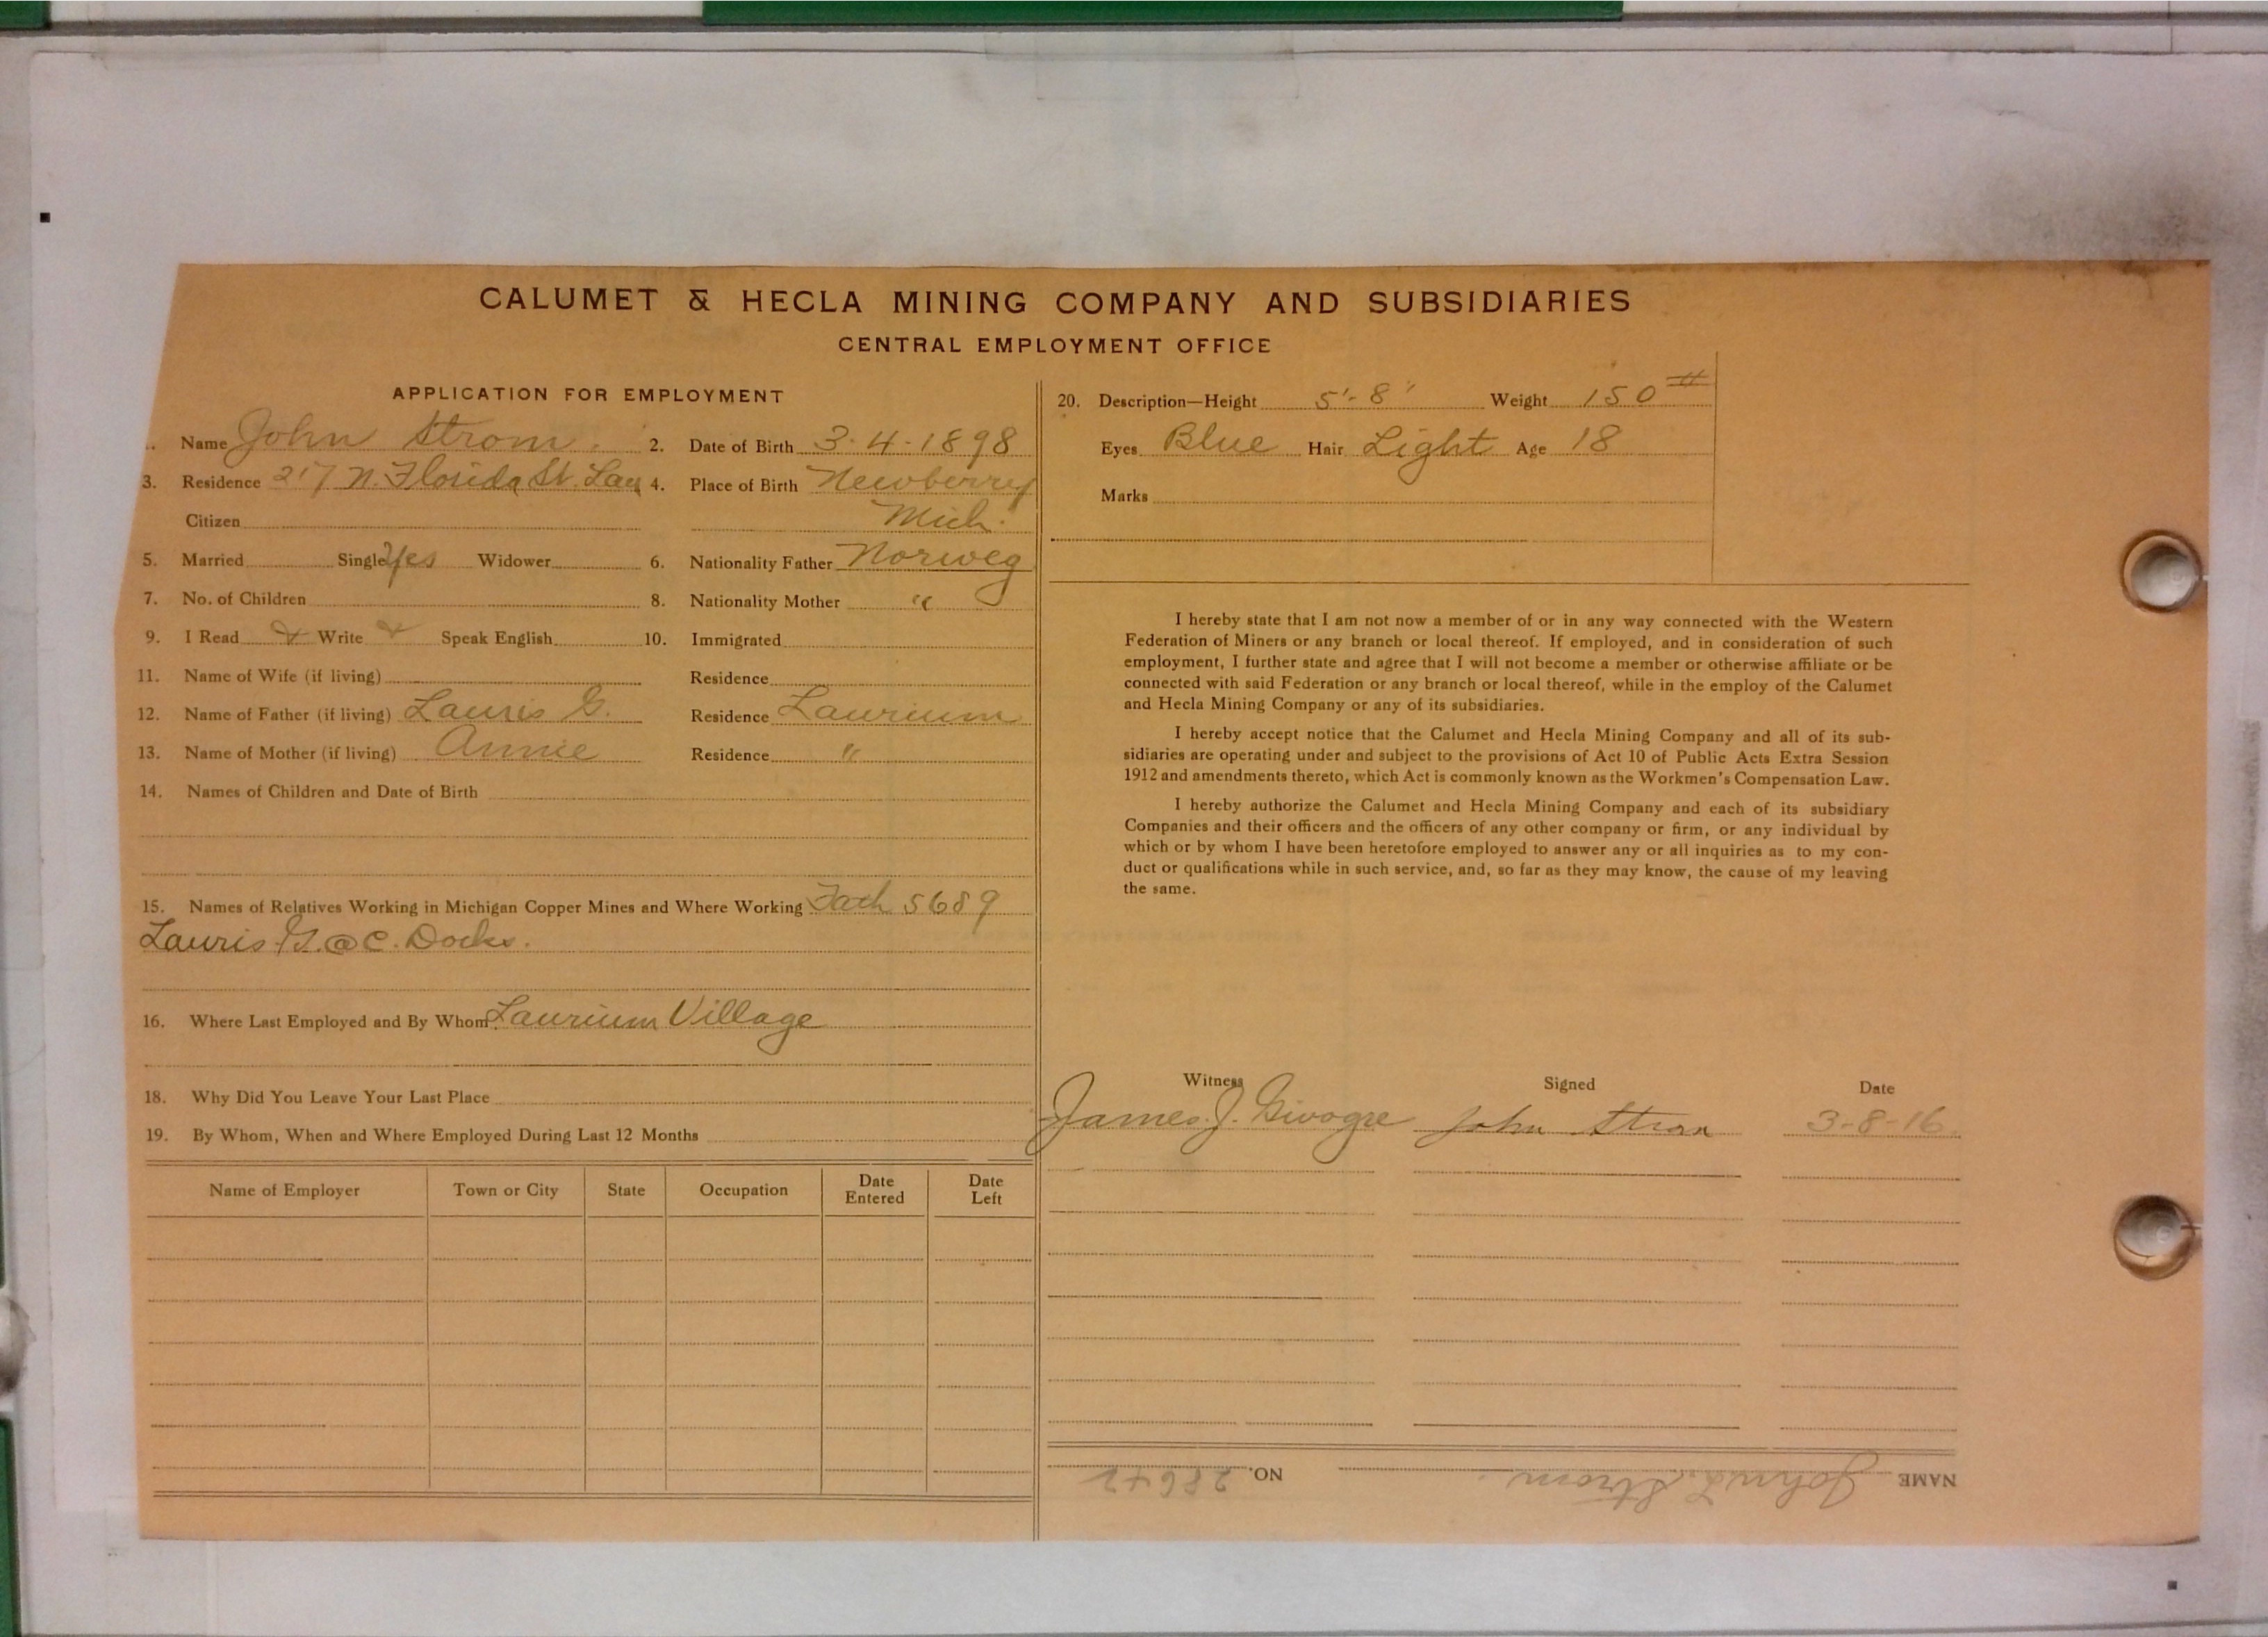 CALUMET & HECLA MINING COMPANY AND SUBSIDIARIES
CENTRAL EMPLOYMENT OFFICE
APPLICATION FOR EMPLOYMENT
Name John Strom. 2. Date of Birth 3-4-1898
3. Residence 217 N. Florida St. Lau 4. Place of Birth Newberry
Citizen Mich.
5. Married Single Yes Widower 6. Nationality Father Norweg
7. No. of Children 8. Nationality Mother "
9. I Read Write Speak English 10. Immigrated
11. Name of Wife (if living) Residence
12. Name of Father (if living) Lauris G. Residence Laurium
13. Name of Mother (if living) Annie Residence "
14. Names of Children and Date of Birth
15. Names of Relatives Working in Michigan Copper Mines and Where Working Fath 5689
Lauris G. @ C. Docks.
16. Where Last Employed and By Whom Laurium Village
18. Why Did You Leave Your Last Place
19. By Whom, When and Where Employed During Last 12 Months
Name of Employer Town or City State Occupation Date Entered Date Left
20. Description—Height 5'-8" Weight 150 #
Eyes Blue Hair Light Age 18
Marks
I hereby state that I am not now a member of or in any way connected with the Western
Federation of Miners or any branch or local thereof. If employed, and in consideration of such
employment, I further state and agree that I will not become a member or otherwise affiliate or be
connected with said Federation or any branch or local thereof, while in the employ of the Calumet
and Hecla Mining Company or any of its subsidiaries.
I hereby accept notice that the Calumet and Hecla Mining Company and all of its sub-
sidiaries are operating under and subject to the provisions of Act 10 of Public Acts Extra Session
1912 and amendments thereto, which Act is commonly known as the Workmen's Compensation Law.
I hereby authorize the Calumet and Hecla Mining Company and each of its subsidiary
Companies and their officers and the officers of any other company or firm, or any individual by
which or by whom I have been heretofore employed to answer any or all inquiries as to my con-
duct or qualifications while in such service, and, so far as they may know, the cause of my leaving
the same.
Witness Signed Date
James J. John Strom 3-8-16
NAME John L. Strom. NO. 28642